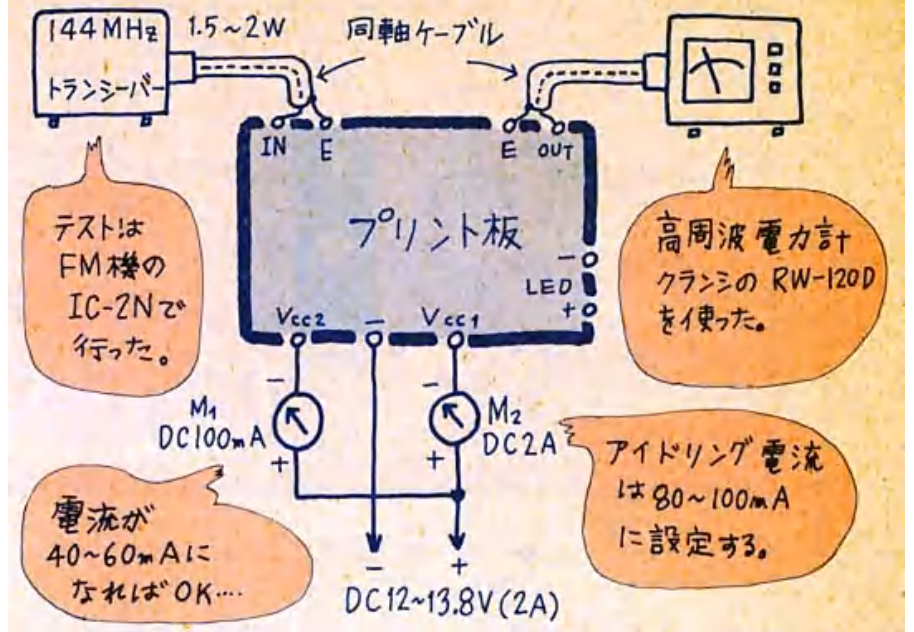 144MHz
トランシーバー
1.5~2W
同軸ケーブル
IN
E
E
OUT
プリント板
テストは
FM機の
IC-2Nで
行った。
高周波電力計
クランシの RW-120D
を使った。
-
LED
+
Vcc2
-
Vcc1
-
M1
DC100mA
+
-
M2
DC2A
+
電流が
40~60mAに
なればOK‥‥
アイドリング電流
は80~100mA
に設定する。
-
+
DC12~13.8V(2A)